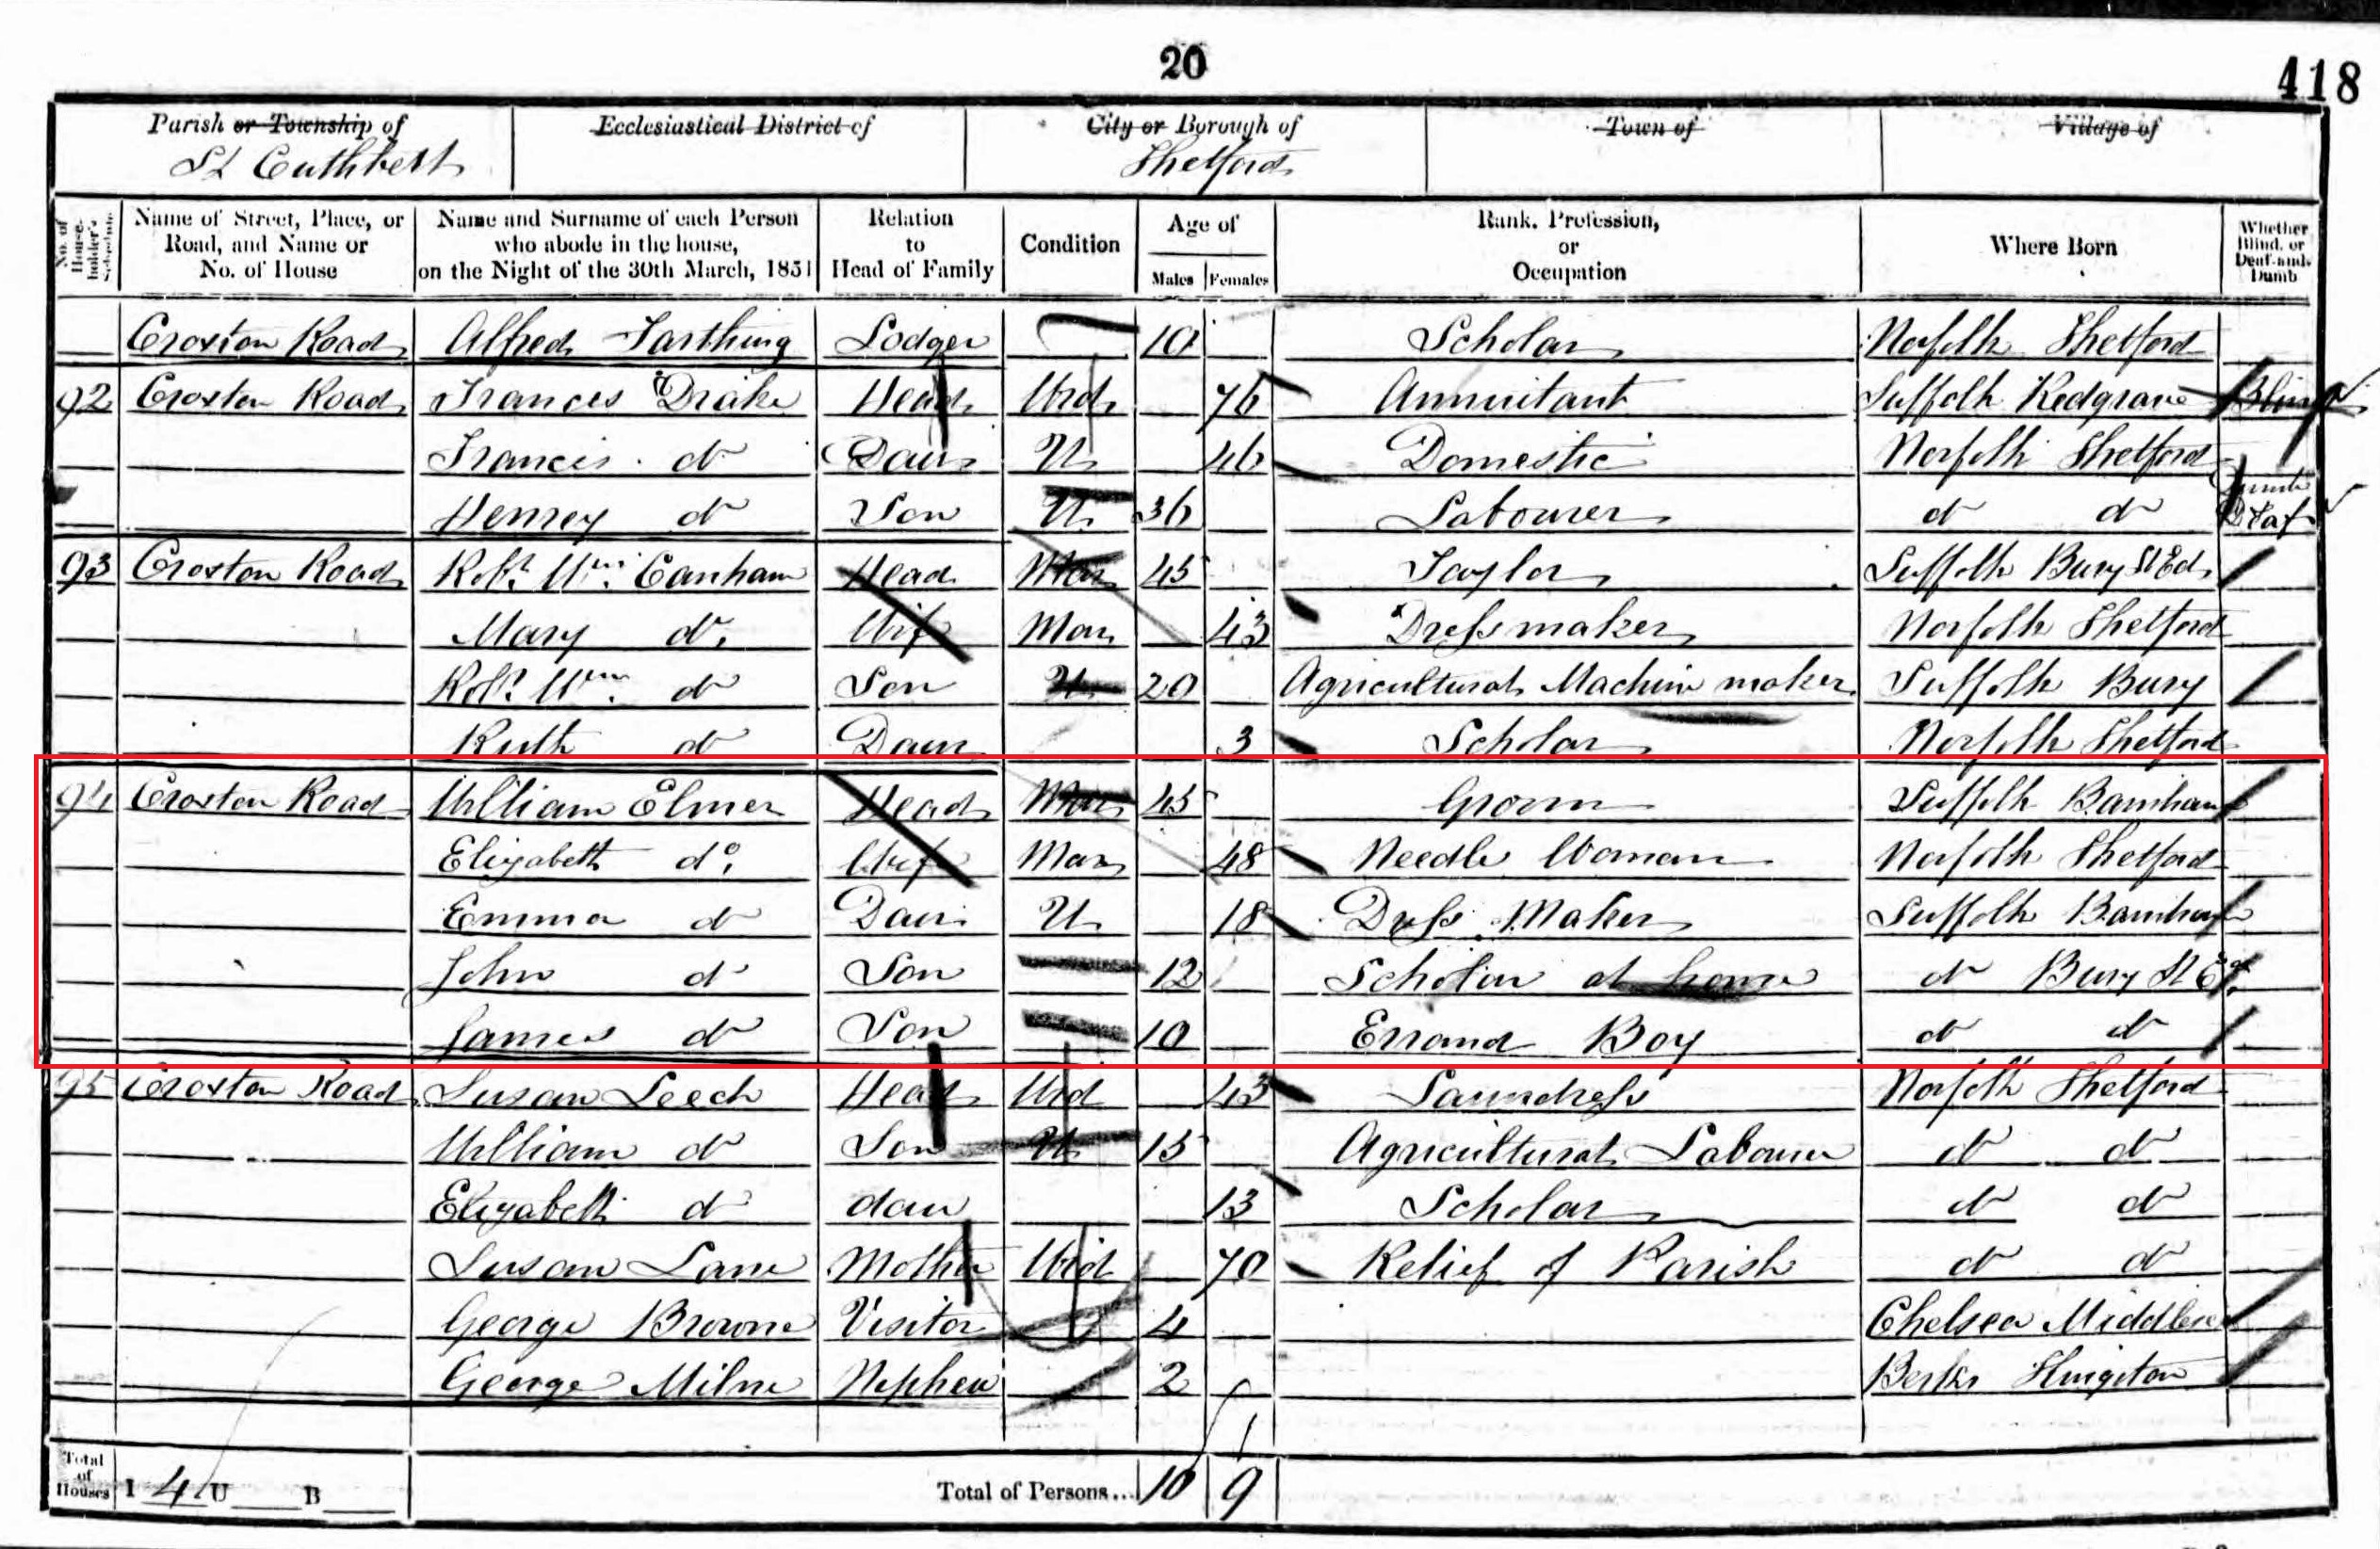 20
418
Parish or Township of
St Cuthbert
Ecclesiastical District of
City or Borough of
Thetford
Town of
Village of
No. of House-holder's Schedule
Name of Street, Place, or Road, and Name or No. of House
Name and Surname of each Person who abode in the house, on the Night of the 30th March, 1851
Relation to Head of Family
Condition
Age of
Males Females
Rank, Profession, or Occupation
Where Born
Whether Blind, or Deaf-and-Dumb
Croxton Road Alfred Farthing Lodger 10 Scholar Norfolk Thetford
92 Croxton Road Frances Drake Head Wid 76 Annuitant Suffolk Redgrave Blind
Francis do Daur U 46 Domestic Norfolk Thetford
Henrey do Son U 36 Labourer do do Dumb Deaf
93 Croxton Road Robt. Wm. Canham Head Mar 45 Taylor Suffolk Bury St Ed
Mary do. Wife Mar 43 Dressmaker Norfolk Thetford
Robt. Wm. do Son U 20 Agricultural Machine maker Suffolk Bury
Ruth do Daur 3 Scholar Norfolk Thetford
94 Croxton Road William Elmer Head Mar 45 Groom Suffolk Barnham
Elizabeth do. Wife Mar 48 Needle Woman Norfolk Thetford
Emma do Daur U 18 Dress Maker Suffolk Barnham
John do Son 12 Scholar at home do Bury St Eds.
James do Son 10 Errand Boy do do
95 Croxton Road Susan Leech Head Wid 43 Laundress Norfolk Thetford
William do Son U 15 Agricultural Labourer do do
Elizabeth do dau 13 Scholar do do
Susan Lane Mother Wid 70 Relief of Parish do do
George Browne Visitor 4 Chelsea Middlesex
George Milne Nephew 2 Berks
Total of Houses I 4 U B
Total of Persons... 10 9